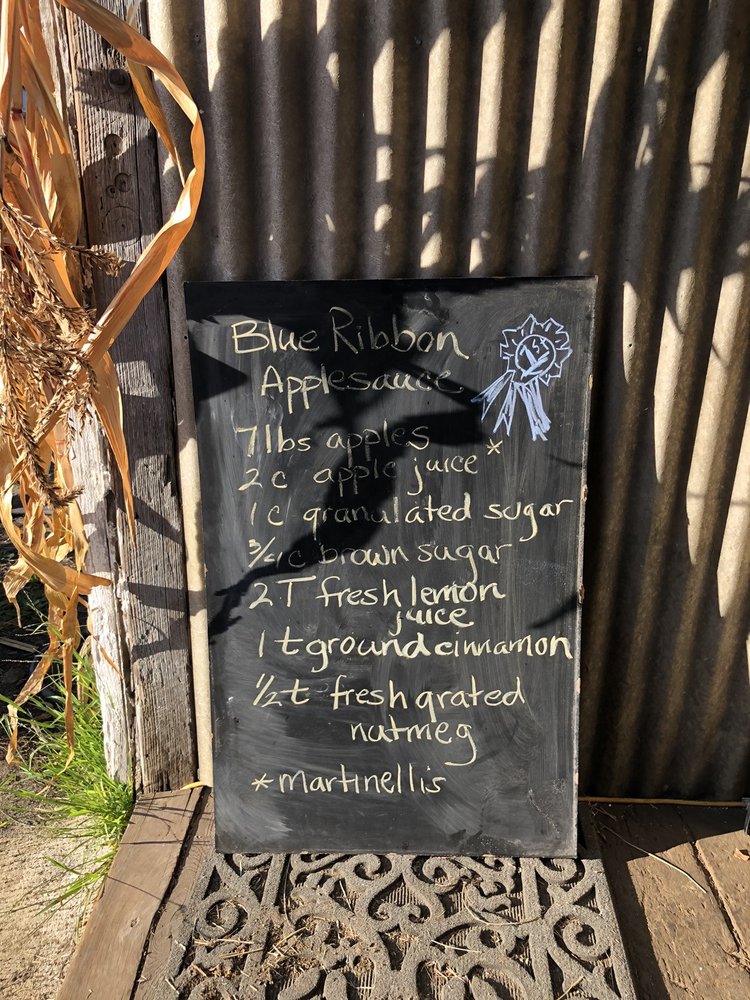 Blue Ribbon
Applesauce
7 lbs apples
2 c apple juice*
1 c granulated sugar
3/4 c brown sugar
2 T fresh lemon
juice
1 t ground cinnamon
1/2 t fresh grated
nutmeg
*martinellis